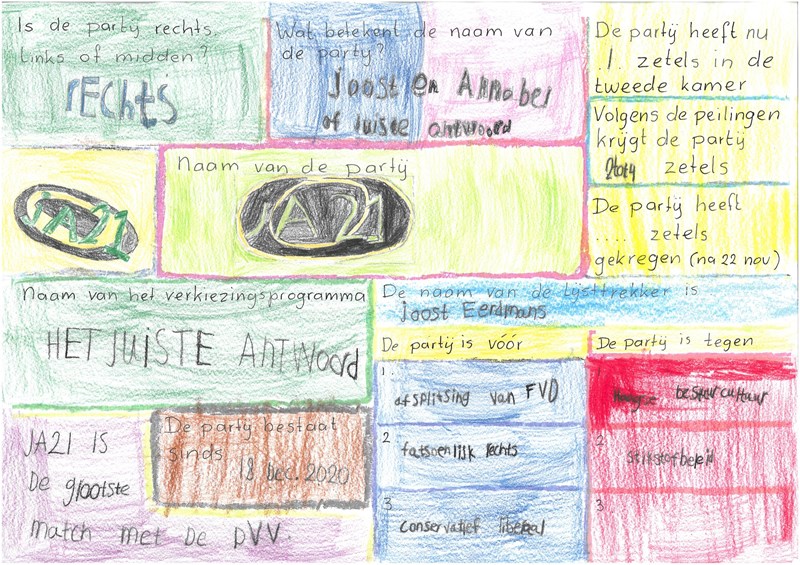 Is de party rechts,
links of midden?
rECHTS
Wat betekent de naam van
de party?
Joost en Annabel
of Juiste antwoord
De partij heeft nu
.1. zetels in de
tweede kamer
Volgens de peilingen
krijgt de partij
2tot4 zetels
De partij heeft
.... zetels
gekregen (na 22 nov)
JA21
Naam van de partij
JA21
Naam van het verkiezingsprogramma
HET JUiSTE AntWoord
De naam van de lijsttrekker is
Joost Eerdmans
De partij is vóór
1.
afsplitsing van FVD
2
fatsoenlijk rechts
3
conservatief liberaal
De partij is tegen
bestuurcultuur
2
stikstofbeleid
3
De party bestaat
sinds
18 Dec. 2020
JA21 IS
De grootste
match met De PVV.